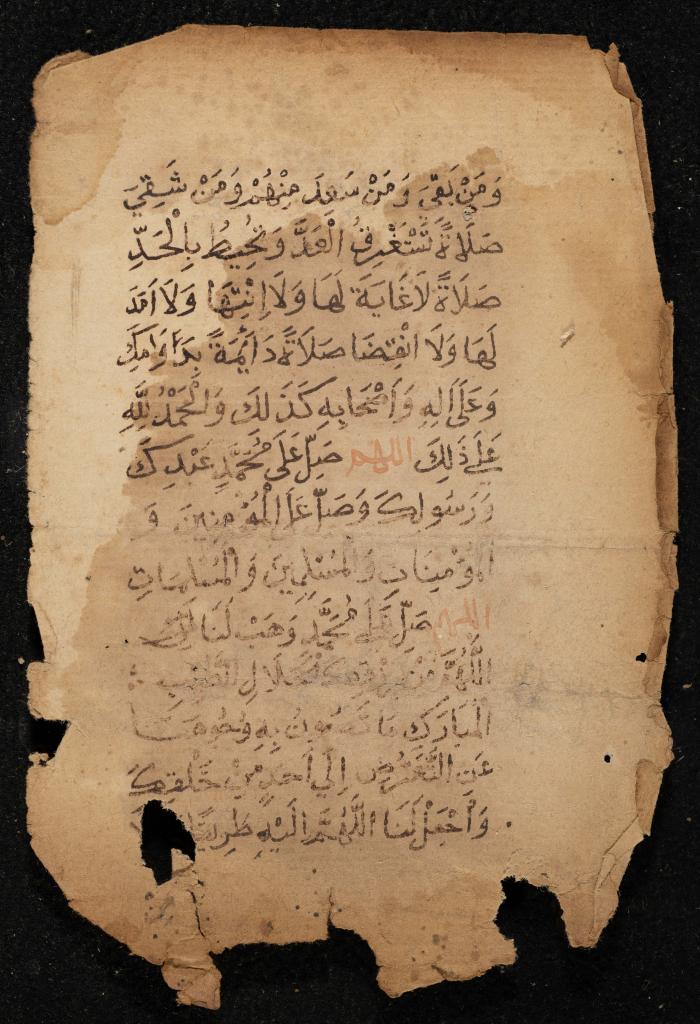 وَمَنْ بَقِيَ وَمَنْ سَعِدَ مِنْهُمْ وَمَنْ شَقِيَ
صَلَاةً تَسْتَغْرِقُ الْعَدَّ وَتُحِيطُ بِالْحَدِّ
صَلَاةً لَا غَايَةَ لَهَا وَلَا اِنْتِهَا وَلَا اَمَدَ
لَهَا وَلَا انْقِضَا صَلَاةً دَائِمَةً بِدَوَامِكَ
وَعَلَى اَلِهِ وَاَصْحَابِهِ كَذَلِكَ وَالْحَمْدُ لِلَّهِ
عَلَى ذَلِكَ اللهم صَلِّ عَلَى مُحَمَّدٍ عَبْدِكَ
وَرَسُولِكَ وَصَلِّ عَلَى الْمُؤْمِنِينَ وَ
الْمُؤْمِنَاتِ وَالْمُسْلِمِينَ وَالْمُسْلِمَاتِ
اللهم صَلِّ عَلَى مُحَمَّدٍ وَهَبْ لَنَا
اللَّهُمَّ مِنْ رِزْقِكَ الْحَلَالِ الطَّيِّبِ
الْمُبَارَكِ مَا تَصُونُ بِهِ وُجُوهَنَا
عَنِ التَّعَرُّضِ اِلَى اَحَدٍ مِنْ خَلْقِكَ
وَاجْعَلْ لَنَا اللَّهُمَّ اِلَيْهِ طَرِيقًا